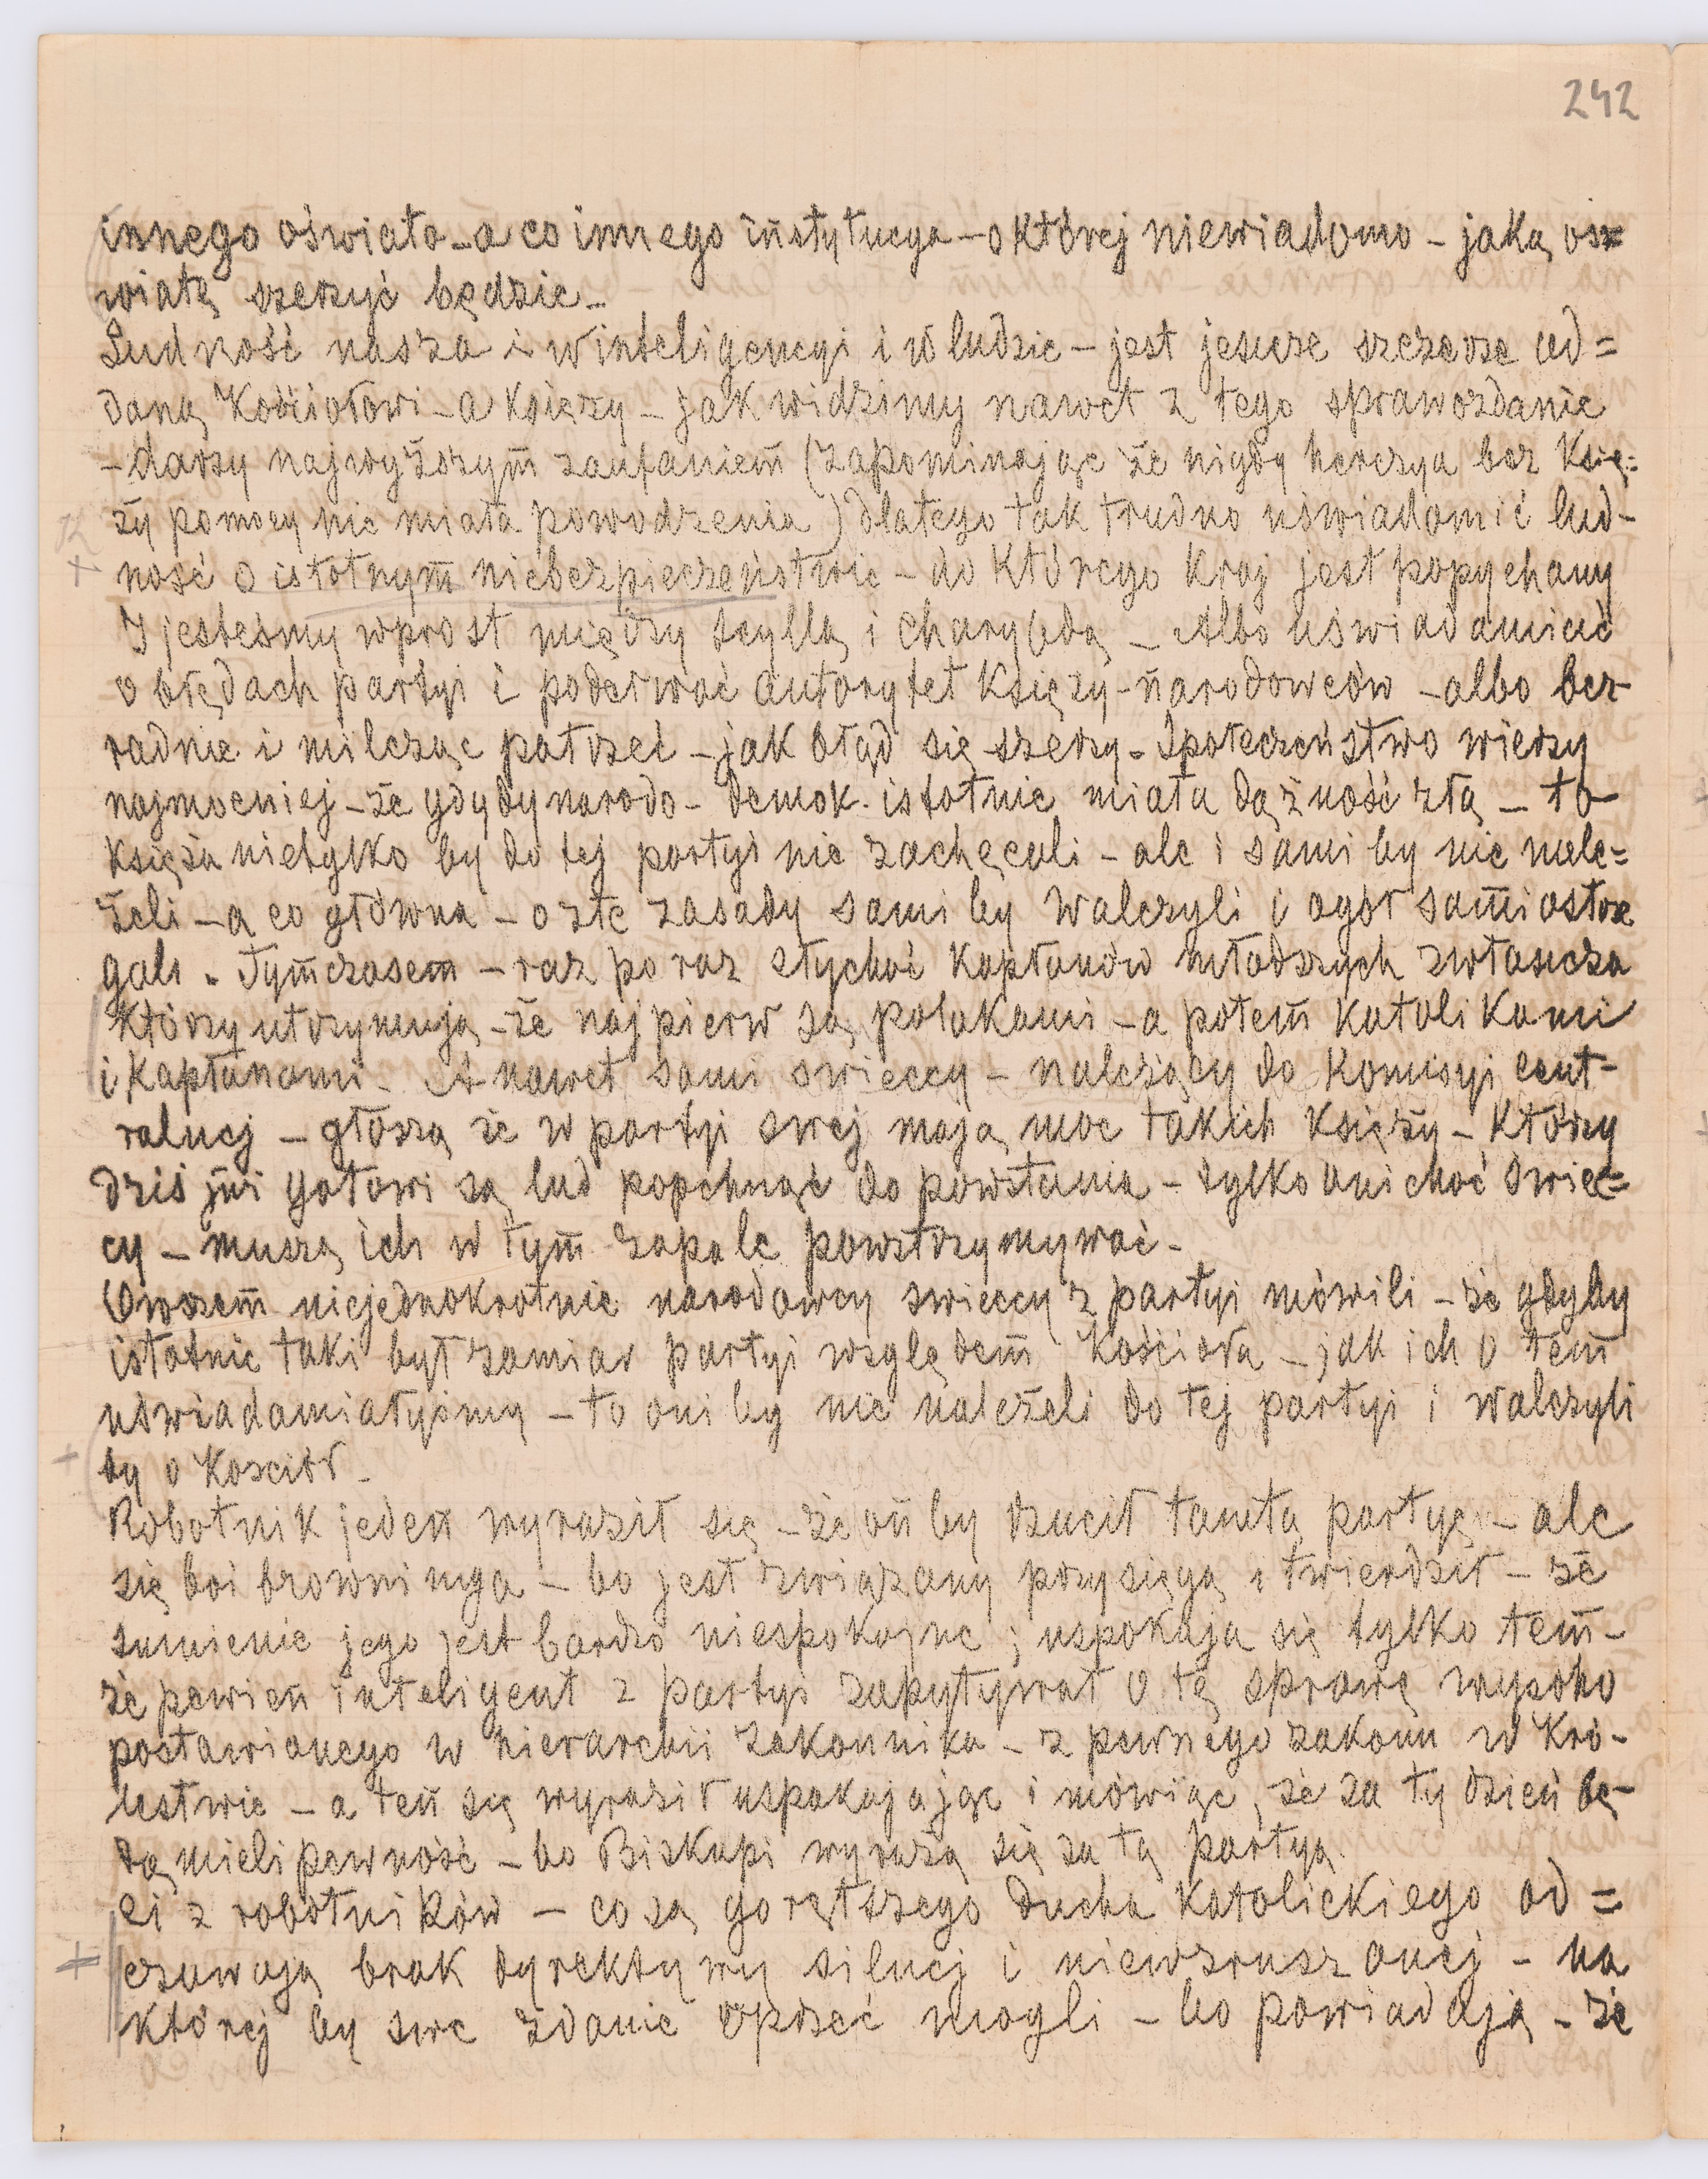 242
innego oświata - a co innego instytucya - o której niewiadomo - jaką oś=
wiatę szerzyć będzie -
Ludność nasza i w inteligencyi i w ludzie - jest jeszcze szczerze od=
daną Kościołowi - a Księży - jak widzimy nawet z tego sprawozdanie
- darzy najwyższym zaufaniem (zapominając że nigdy herezya bez Księ=
ży pomocy nie miała powodzenia) dlatego tak trudno uświadomić lud-
ność o istotnym niebezpieczeństwie - do którego Kraj jest popychany
I jesteśmy wprost między Scyllą i Charybdą - Albo uświadamiać
o błędach partyi i poderwać autorytet Księży-narodowców - albo bez-
radnie i milcząc patrzeć - jak błąd się szerzy. Społeczeństwo wierzy
najmocniej - że gdyby narodo-demok. istotnie miała dążność złą - to
Księża nietylko by do tej partyi nie zachęcali - ale i sami by nie nale=
żeli - a co główna - o złe zasady sami by walczyli i ogół sami ostrze
gali. Tymczasem - raz po raz słychać Kapłanów młodszych zwłaszcza
Którzy utrzymują - że najpierw są polakami - a potem Katolikami
i Kapłanami - A nawet sami świeccy - należący do Komisyi cent-
ralnej - głoszą że w partyi swej mają moc takich Księży - Którzy
dziś już gotowi są lud popchnąć do powstania - tylko oni choć świec=
cy - muszą ich w tym zapale powstrzymywać -
Owszem niejednokrotnie narodowcy świeccy z partyi mówili - że gdyby
istotnie taki był zamiar partyi względem Kościoła - jak ich o tem
uświadamiałyśmy - to oni by nie należeli do tej partyi i walczyli
by o Kościół -
Robotnik jeden wyraził się - że on by rzucił tamtą partyę - ale
się boi browninga - bo jest związany przysięgą i twierdził - że
sumienie jego jest bardzo niespokojne; uspokaja się tylko tem -
że pewien inteligent z partyi zapytywał o tę sprawę wysoko
postawionego w hierarchii zakonnika - z pewnego zakonu w Kró-
lestwie - a ten się wyraził uspakajając i mówiąc, że za tydzień bę-
dą mieli pewność - bo Biskupi wyrażą się za tą partyą.
Ci z robotników - co są gorętszego ducha Katolickiego od=
czuwają brak dyrektywy silnej i niewzruszonej - na
Której by swe zdanie oprzeć mogli - bo powiadają - że